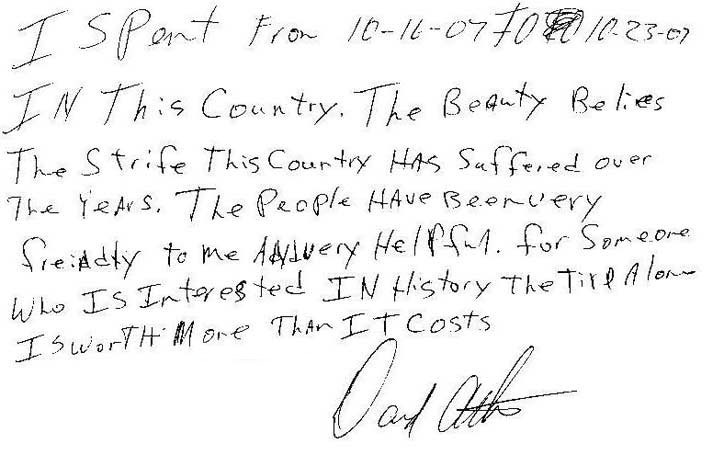 I Spent From 10-16-07 To 10-23-07
IN This Country. The Beauty Belies
The Strife This Country HAS Suffered over
The YeArs. The People HAve Been very
freindly to me ANd very Helpful. for Someone
Who Is Interested IN History The Tire Alone
Is worTH More ThAn IT Costs